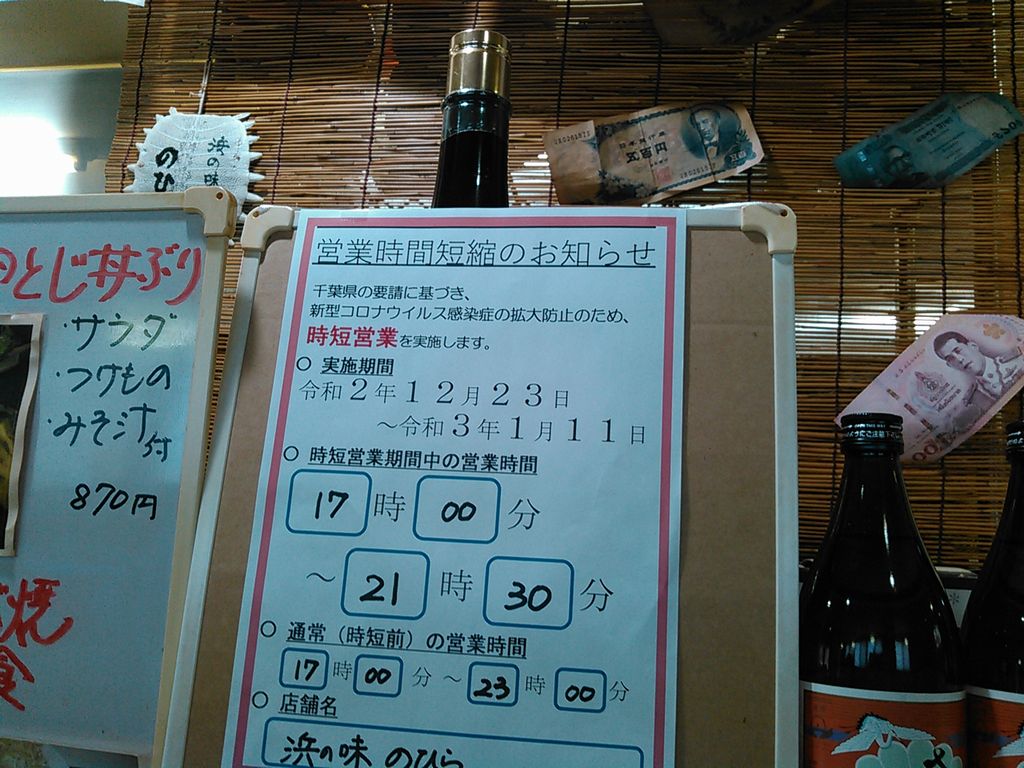 浜の味
のひ
とじ丼ぶり
・サラダ
・つけもの
・みそ汁付
870円
焼
食
営業時間短縮のお知らせ
千葉県の要請に基づき、
新型コロナウイルス感染症の拡大防止のため、
時短営業を実施します。
○ 実施期間
令和2年12月23日
～令和3年1月11日
○ 時短営業期間中の営業時間
17時00分
～21時30分
○ 通常（時短前）の営業時間
17時00分～23時00分
○ 店舗名
浜の味 のひら
五百円